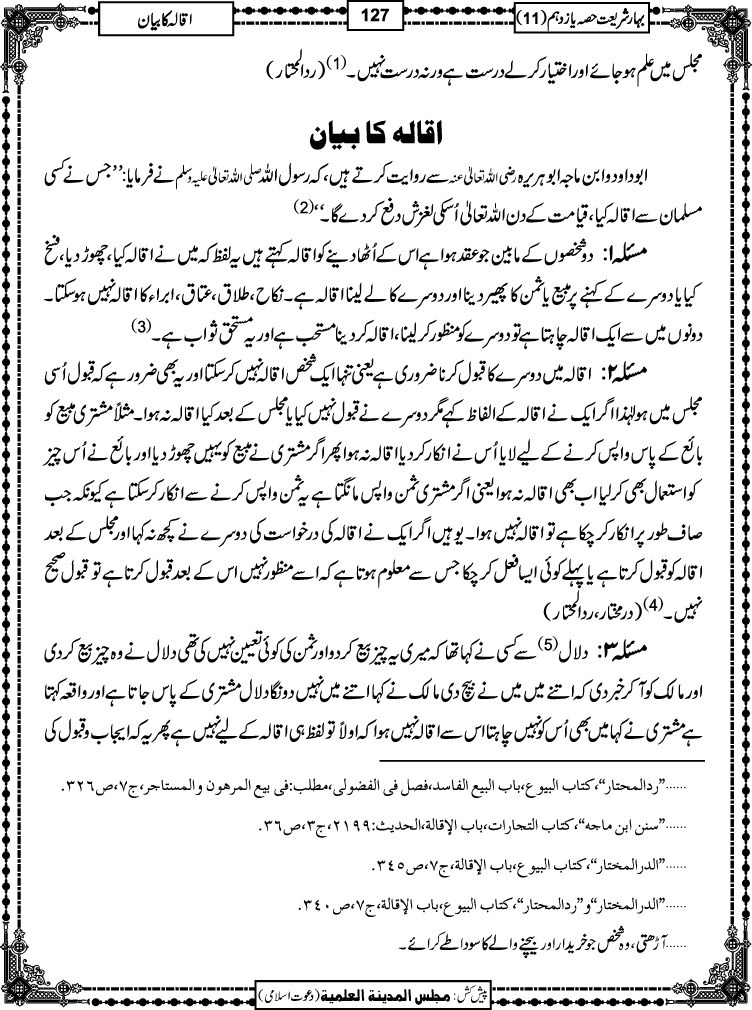 بہارشریعت حصہ یازدہم (11)
127
اقالہ کا بیان
مجلس میں علم ہو جائے اور اختیار کرلے درست ہے ورنہ درست نہیں۔(1) (ردالمحتار)
اقالہ کا بیان
ابوداود وابن ماجہ ابوہریرہ رضی اللہ تعالیٰ عنہ سے روایت کرتے ہیں، کہ رسول اللہ صلی اللہ تعالیٰ علیہ وسلم نے فرمایا: ’’جس نے کسی
مسلمان سے اقالہ کیا، قیامت کے دن اللہ تعالیٰ اُسکی لغزش دفع کردے گا۔‘‘(2)
مسئلہ ۱: دو شخصوں کے مابین جو عقد ہوا ہے اس کے اُٹھا دینے کو اقالہ کہتے ہیں یہ لفظ کہ میں نے اقالہ کیا، چھوڑ دیا، فسخ
کیا یا دوسرے کے کہنے پر مبیع یا ثمن کا پھیر دینا اور دوسرے کا لے لینا اقالہ ہے۔ نکاح، طلاق، عتاق، ابراء کا اقالہ نہیں ہوسکتا۔
دونوں میں سے ایک اقالہ چاہتا ہے تو دوسرے کو منظور کرلینا، اقالہ کردینا مستحب ہے اور یہ مستحق ثواب ہے۔(3)
مسئلہ ۲: اقالہ میں دوسرے کا قبول کرنا ضروری ہے یعنی تنہا ایک شخص اقالہ نہیں کرسکتا اور یہ بھی ضرور ہے کہ قبول اُسی
مجلس میں ہو لہٰذا اگر ایک نے اقالہ کے الفاظ کہے مگر دوسرے نے قبول نہیں کیا یا مجلس کے بعد کیا اقالہ نہ ہوا۔ مثلاً مشتری مبیع کو
بائع کے پاس واپس کرنے کے لیے لایا اُس نے انکار کردیا اقالہ نہ ہوا پھر اگر مشتری نے مبیع کو یہیں چھوڑ دیا اور بائع نے اُس چیز
کو استعمال بھی کرلیا اب بھی اقالہ نہ ہوا یعنی اگر مشتری ثمن واپس مانگتا ہے یہ ثمن واپس کرنے سے انکار کرسکتا ہے کیونکہ جب
صاف طور پر انکار کرچکا ہے تو اقالہ نہیں ہوا۔ یوہیں اگر ایک نے اقالہ کی درخواست کی دوسرے نے کچھ نہ کہا اور مجلس کے بعد
اقالہ کو قبول کرتا ہے یا پہلے کوئی ایسا فعل کرچکا جس سے معلوم ہوتا ہے کہ اسے منظور نہیں اس کے بعد قبول کرتا ہے تو قبول صحیح
نہیں۔(4) (درمختار، ردالمحتار)
مسئلہ ۳: دلال(5) سے کسی نے کہا تھا کہ میری یہ چیز بیع کردو اور ثمن کی کوئی تعیین نہیں کی تھی دلال نے وہ چیز بیع کردی
اور مالک کو آکر خبر دی کہ اتنے میں میں نے بیچ دی مالک نے کہا اتنے میں نہیں دونگا دلال مشتری کے پاس جاتا ہے اور واقعہ کہتا
ہے مشتری نے کہا میں بھی اُس کو نہیں چاہتا اس سے اقالہ نہیں ہوا کہ اولاً تو لفظ ہی اقالہ کے لیے نہیں ہے پھر یہ کہ ایجاب و قبول کی
......”ردالمحتار“، کتاب البیوع، باب البیع الفاسد، فصل فی الفضولی، مطلب: فی بیع المرھون والمستاجر، ج۷، ص۳۲۶.
......”سنن ابن ماجه“، کتاب التجارات، باب الإقالة، الحدیث: ۲۱۹۹، ج۳، ص۳۶.
......”الدرالمختار“، کتاب البیوع، باب الإقالة، ج۷، ص۳۴۵.
......”الدرالمختار“ و”ردالمحتار“، کتاب البیوع، باب الإقالة، ج۷، ص۳۴۰.
......آڑھتی، وہ شخص جو خریدار اور بیچنے والے کا سودا طے کرائے۔
پیش کش: مجلس المدینة العلمیة (دعوت اسلامی)